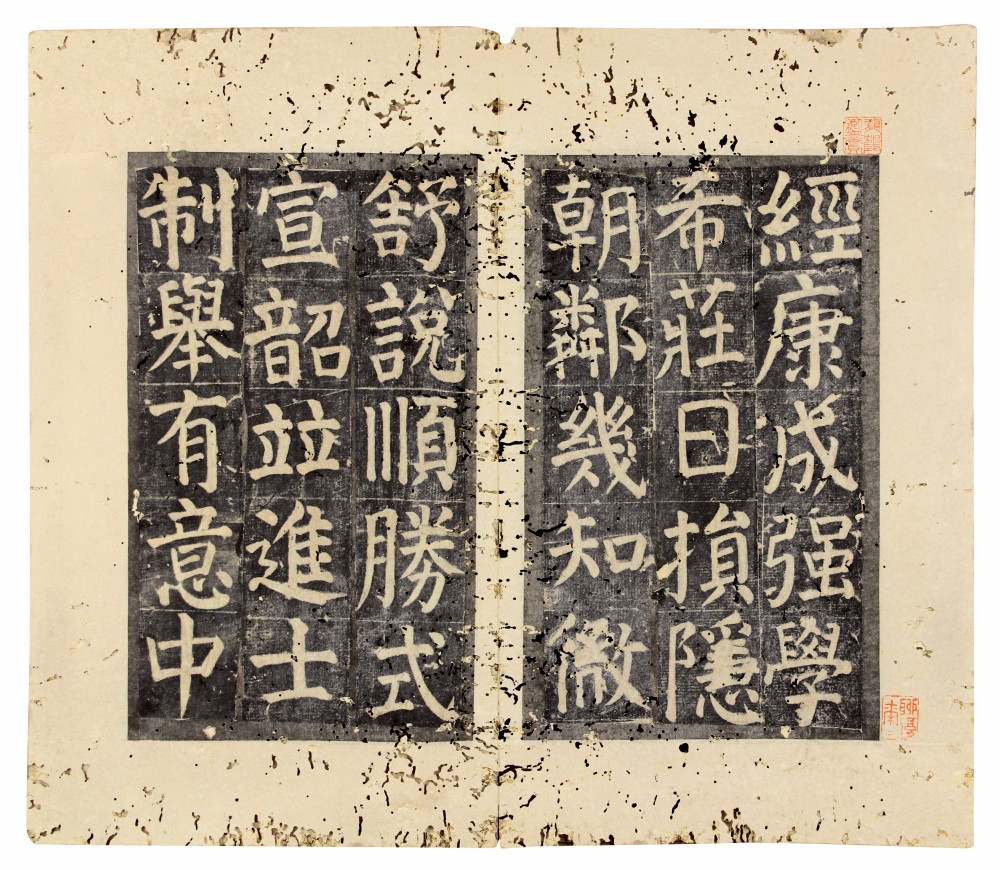 經康成强學
希莊日損隱
朝鄰幾知微
舒說順勝式
宣韶竝進士
制舉有意中